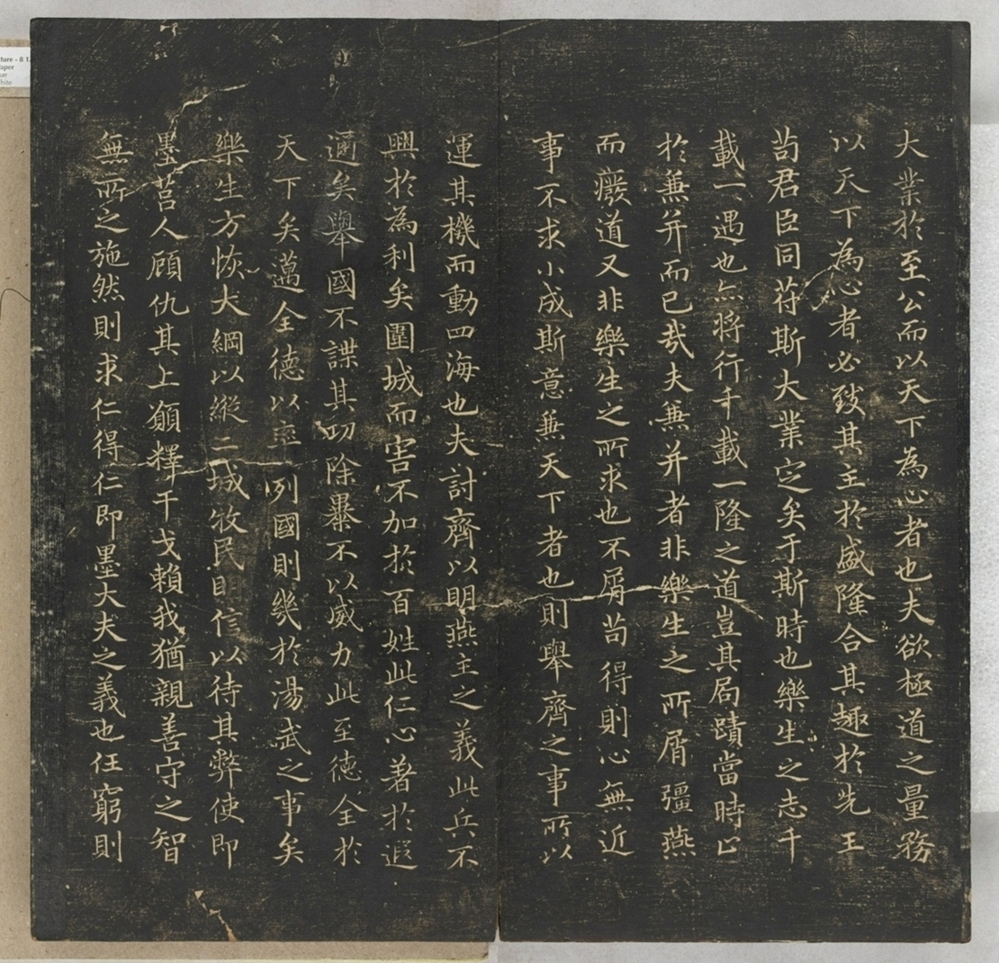 大業於至公而以天下為心者也夫欲極道之量務
以天下為心者必致其主於盛隆合其趣於先王
苟君臣同荷斯大業定矣于斯時也樂生之志千
載一遇也亦將行千載一隆之道豈其局蹟當時止
於兼并而已哉夫兼并者非樂生之所屑彊燕
而癈道又非樂生之所求也不屑苟得則心無近
事不求小成斯意兼天下者也則舉齊之事所以
運其機而動四海也夫討齊以明燕主之義此兵不
興於為利矣圍城而害不加於百姓此仁心著於遐
邇矣舉國不謀其功除暴不以威力此至德全於
天下矣邁全德以率列國則幾於湯武之事矣
樂生方恢大綱以縱二城牧民明信以待其弊使即
墨莒人顧仇其上願釋干戈賴我猶親善守之智
無所之施然則求仁得仁即墨大夫之義也任窮則